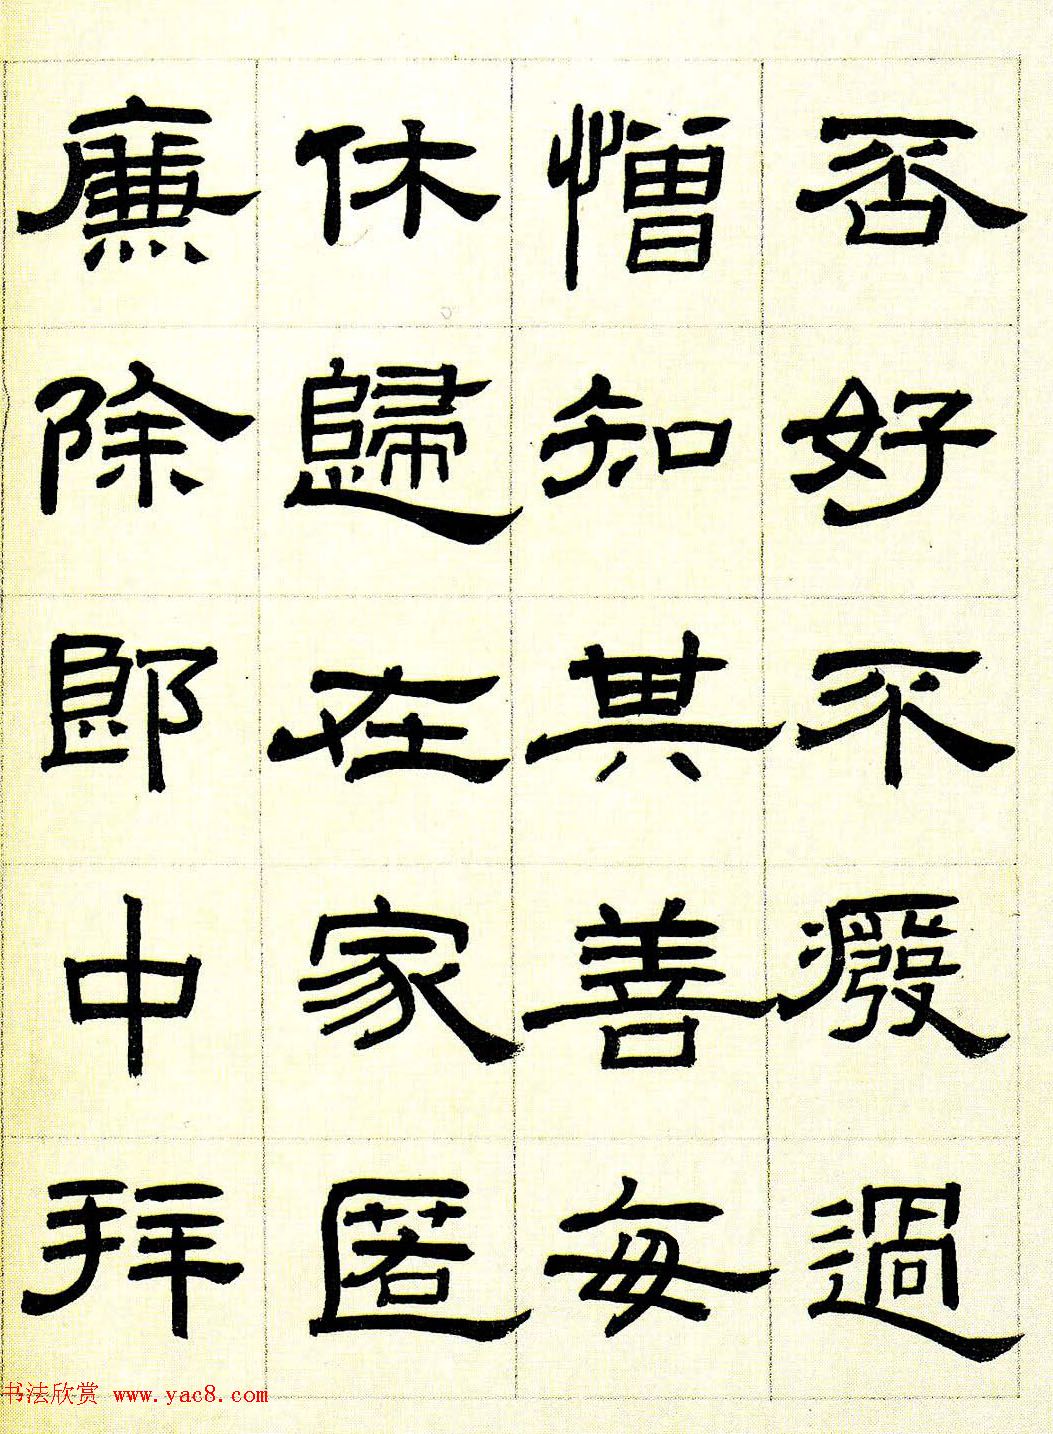 否好不癈過
憎知其善每
休歸在家匿
廉除郎中拜
书法欣赏 www.yac8.com